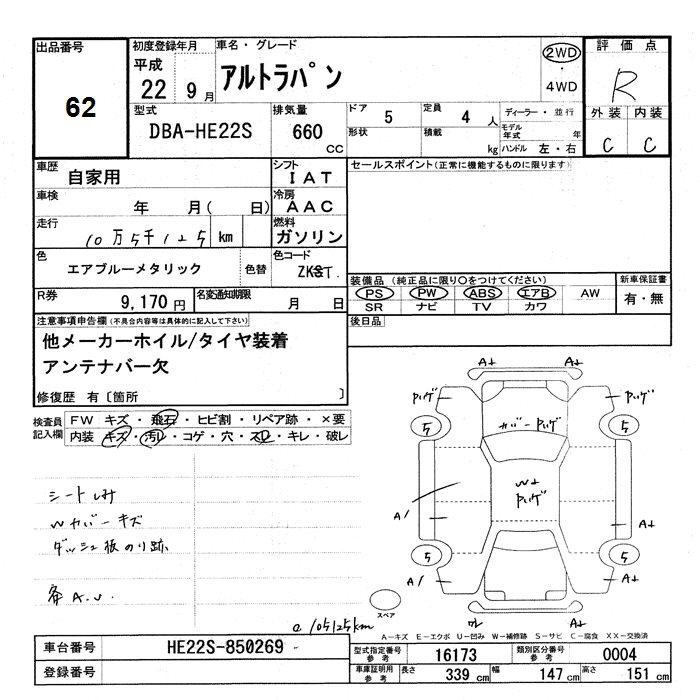 出品番号
62
初度登録年月
平成
22年 9月
車名・グレード
アルトラパン
2WD
・
4WD
評価点
R
外装 内装
C C
型式
DBA-HE22S
排気量
660
CC
ドア 5
形状
定員 4 人
積載 kg
ディーラー・並行
モデル年式 年
ハンドル 左・右
車歴
自家用
シフト
IAT
セールスポイント(正常に機能するものに限ります)
車検
年 月( 日)
冷房
AAC
走行
10万5千125 km
燃料
ガソリン
色
エアブルーメタリック
色替
色コード
装備品(純正品に限り○をつけてください)
PS PW ABS エアB AW
SR ナビ TV カワ
新車保証書
有・無
R券
9,170円
名変通知期限
月 日
後日品
注意事項申告欄(不具合内容等は具体的に記入して下さい)
他メーカーホイル/タイヤ装着
アンテナバー欠
修復歴 有〔箇所 〕
検査員
記入欄
FW キズ・飛石・ヒビ割・リペア跡・×要
内装 キズ・汚レ・コゲ・穴・スレ・キレ・破レ
シートしみ
Wカバーキズ
ダッシュ板のり跡
各A.U.
@105125km
A+
A+
5
5
カバーPハゲ
W+
Pハゲ
A1
A+
5
5
A1
A+
A+
スペア
A−キズ E−エクボ U−凹み W−補修跡 S−サビ C−腐食 XX−交換済
車台番号
HE22S-850269
登録番号
型式指定番号
参考
16173
類別区分番号
参考
0004
車庫証明用
参考
長さ 339 cm
幅 147 cm
高さ 151 cm